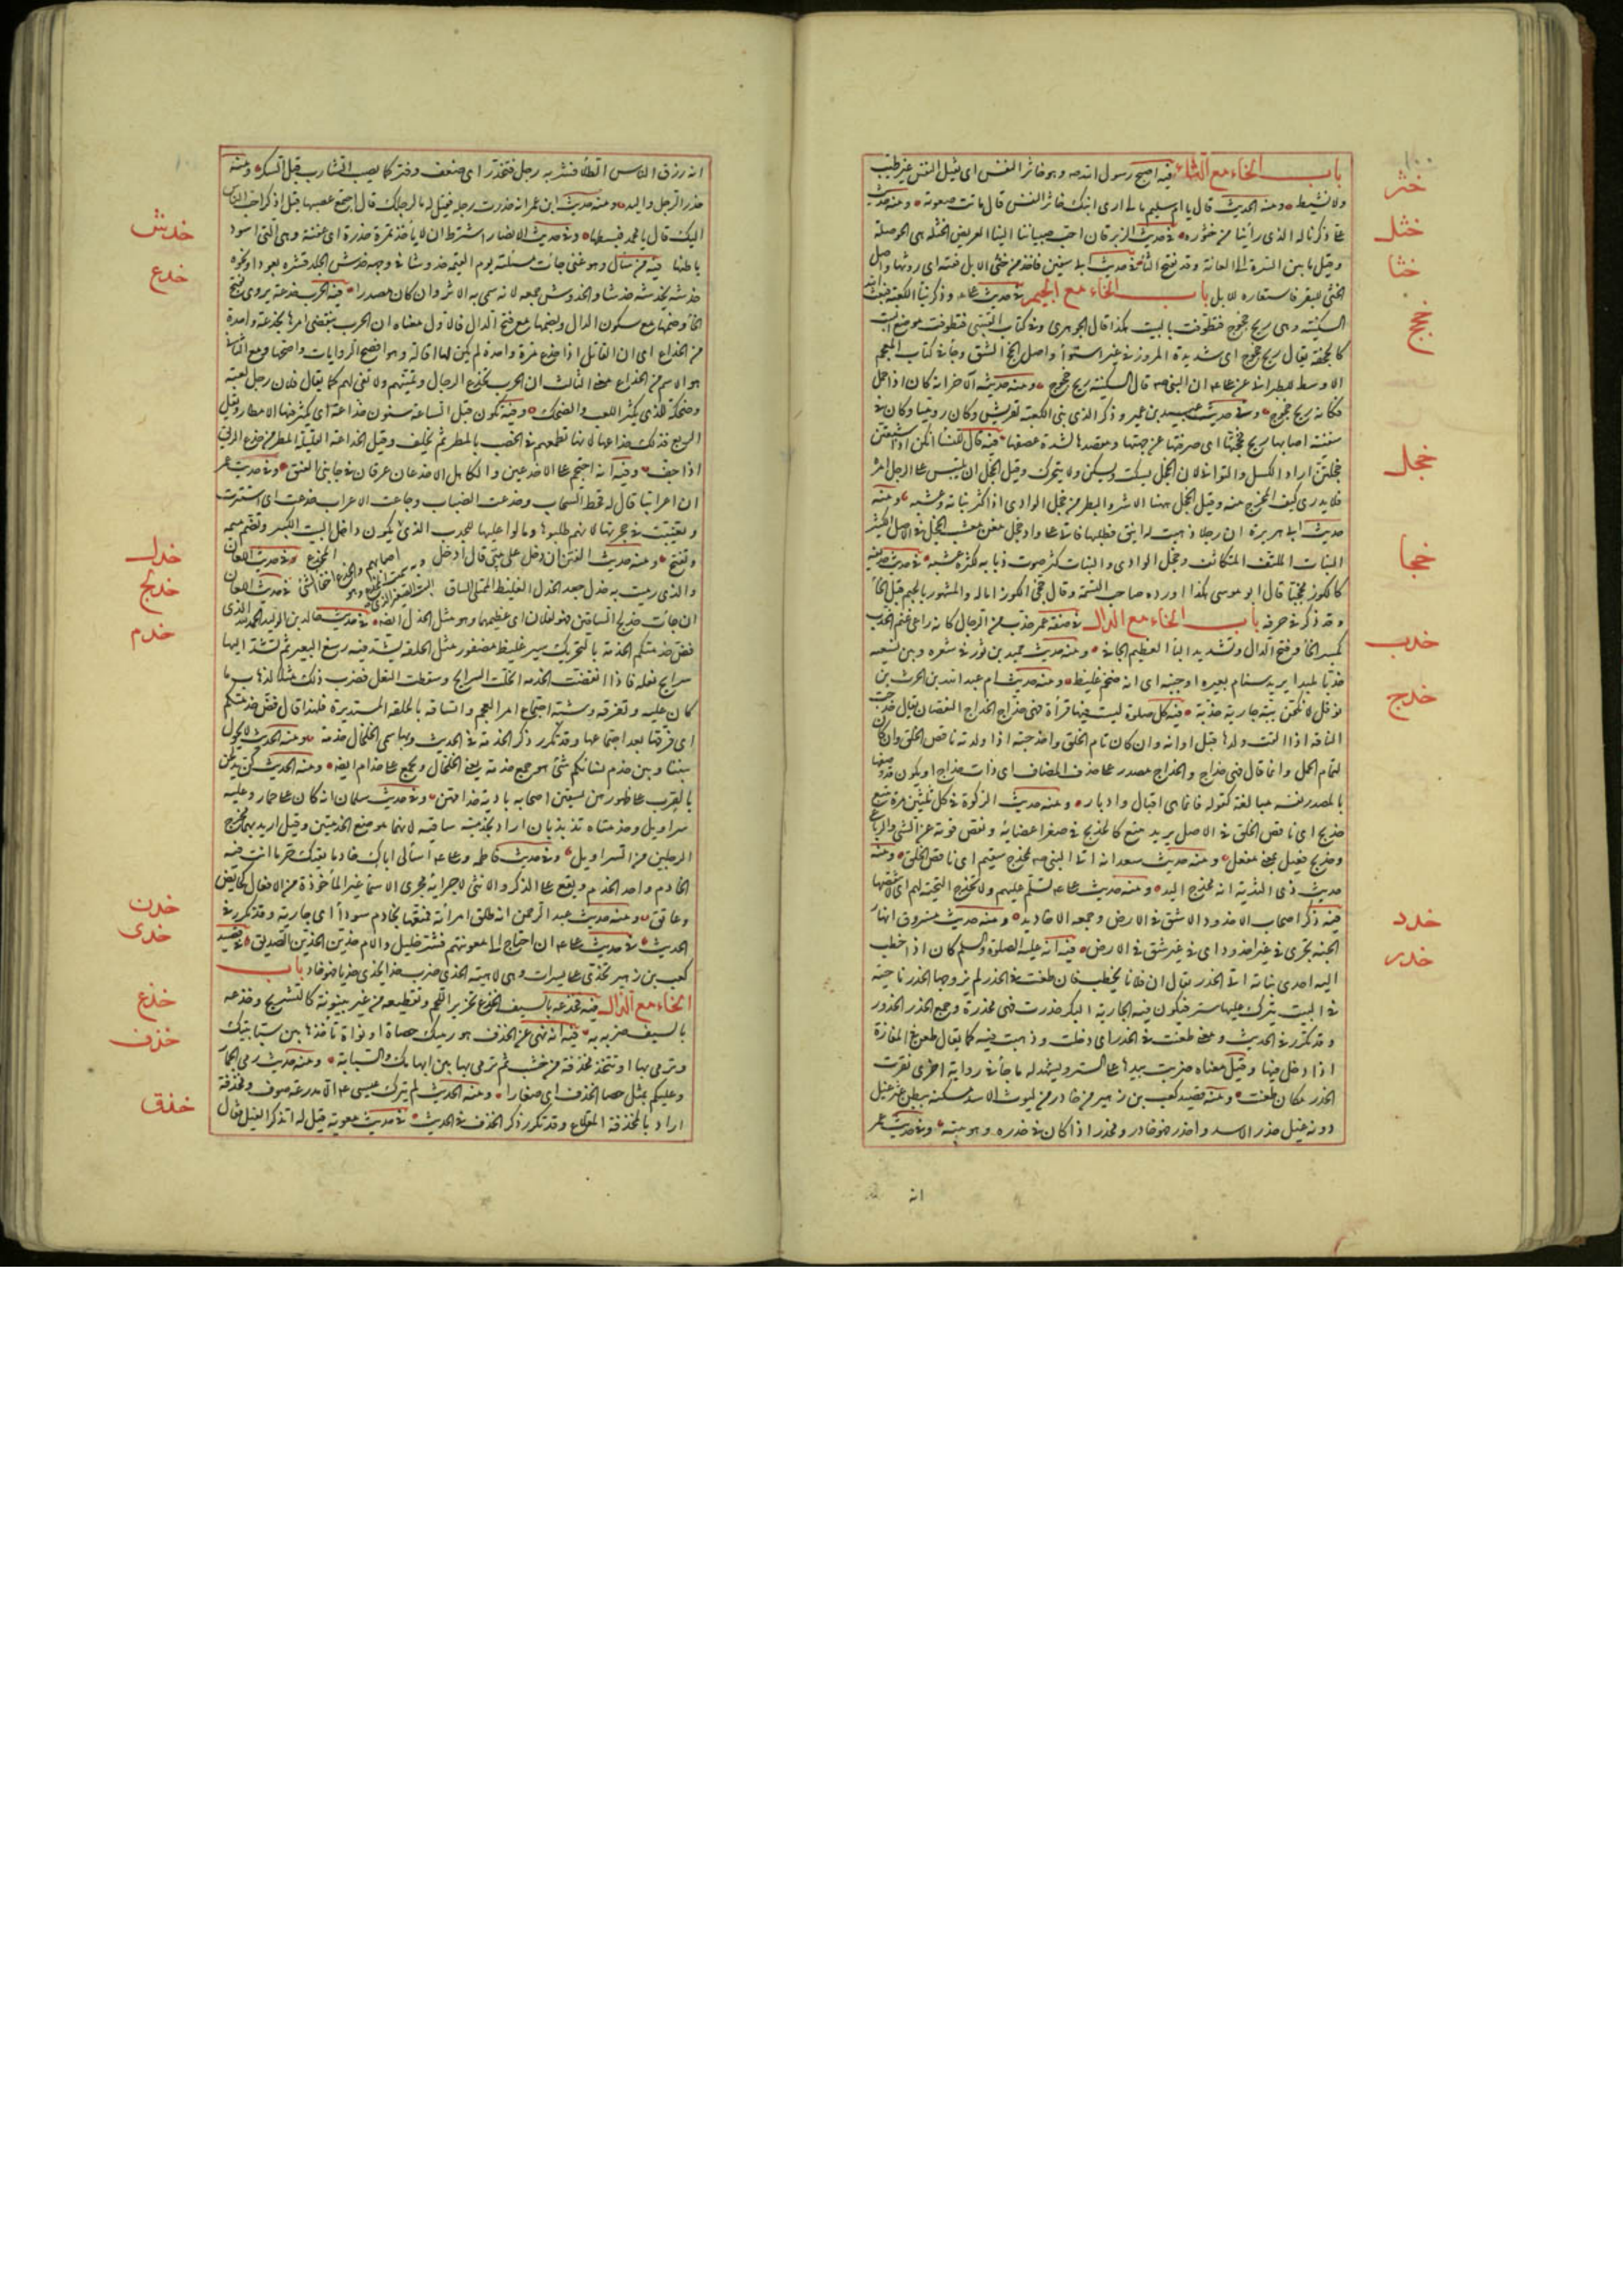 باب الخاء مع الثاء فيه اصبح رسول الله صه وهو خاثر النفس اى ثقيل النفس غير طيب
ولا نشيط ومنه الحديث قال يا ام سليم مالى ارى ابنك خاثر النفس قال ماتت صعوته ومنه حديث
على ذكرنا له الذى رأينا من خثوره فى حديث الزبرقان احب صبياننا الينا العريض الخثلة هى الحوصلة
وقيل ما بين السرة الى العانة وقد تفتح الثاء فى حديث ابى سفين فاخذ من خثى الابل ففته اى روثها واصل
الخثى للبقر فاستعاره للابل باب الخاء مع الجيم فى حديث على وذكر بنا الكعبة فبعث الله
السكينة وهى ريح خجوج فتطوقت بالبيت هكذا قال الهروى وفى كتاب القتيبى فتطوقت موضع البيت
كالحجفة يقال ريح خجوج اى شديدة المرور فى غير استواء واصل الخج الشق وجاء فى كتاب المعجم
الاوسط للطبرانى عن على ان النبى صه قال السكينة ريح خجوج ومنه حديثه الاخر انه كان اذا حمل
فكانه ريح خجوج وفى حديث عبيد بن عمير وذكر الذى بنى الكعبة لقريش وكان روميا وكان فى
سفينة اصابتها ريح فخجتها اى صرفتها عن جهتها ومقصدها لشدة عصفها فيه قال للنساء انكن اذا شبعتن
خجلتن اراد الكسل والتوانى لان الخجل يسكت ويسكن ولا يتحرك وقيل الخجل ان يلتبس على الرجل امره
فلا يدرى كيف المخرج منه وقيل الخجل ههنا الاشر والبطر من خجل الوادى اذا كثر نباته وعشبه ومنه
حديث ابى هريرة ان رجلا ذهبت له اينق فطلبها فاتى على واد خجل مغن معشب الخجل فى الاصل الكثير
النبات الملتف المتكاثف وخجل الوادى والنبات كثر صوت ذبابه لكثرة عشبه فى حديث حذيفة
كالكوز مخجيا قال ابو موسى هكذا اورده صاحب التتمة وقال خجى الكوز اماله والمشهور بالجيم قبل الخاء
وقد ذكر فى حرفه باب الخاء مع الدال فى صفة عمر خدب من الرجال كانه راعى غنم الخدب
بكسر الخاء وفتح الدال وتشديد الباء العظيم الجافى ومنه حديث حميد بن ثور فى شعره وبين نسعيه
خدبا ملبدا يريد سنام بعيره او جنبه اى انه ضخم غليظ ومنه حديث ام عبد الله بن الحرث بن
نوفل لانكحن ببه جارية خدبه فيه كل صلوة ليست فيها قرأة فهى خداج الخداج النقصان يقال خدجت
الناقة اذا القت ولدها قبل اوانه وان كان تام الخلق واخدجته اذا ولدته ناقص الخلق وان كان
لتمام الحمل وانما قال فهى خداج والخداج مصدر على حذف المضاف اى ذات خداج او يكون قد وصفها
بالمصدر نفسه مبالغة كقوله فانما هى اقبال وادبار ومنه حديث الزكوة فى كل ثلثين بقرة تبيع
خديج اى ناقص الخلق فى الاصل يريد تبيع كالخديج فى صغر اعضائه ونقص قوته عن الثنى والرباع
وخديج فعيل بمعنى مفعل ومنه حديث سعد انه اتى النبى صه بمخدج سقيم اى ناقص الخلق ومنه
حديث ذى الثدية انه مخدج اليد ومنه حديث على عه تسلم عليهم ولا تخدج التحية لهم اى لا تنقصها
فيه ذكر اصحاب الاخدود الاخدود الشق فى الارض وجمعه الاخاديد ومنه حديث مسروق انهار
الجنة تجرى فى غير اخدود اى فى غير شق فى الارض فيه انه عليه الصلوة والسلم كان اذا خطب
اليه احدى بناته اتى الخدر فقال ان فلانا يخطب فان طعنت فى الخدر لم يزوجها الخدر ناحية
فى البيت يترك عليها ستر فتكون فيه الجارية البكر خدرت فهى مخدرة وجمع الخدر الخدور
وقد تكرر فى الحديث ومعنى طعنت فى الخدر اى دخلت وذهبت فيه كما يقال طعن فى المفازة
اذا دخل فيها وقيل معناه ضربت بيدها على الستر ويشهد له ما جاء فى رواية اخرى نقرت
الخدر مكان طعنت ومنه قصيد كعب بن زهير من خادر من ليوث الاسد مسكنه ببطن عثر غيل
دونه غيل خدر الاسد واخدر فهو خادر ومخدر اذا كان فى خدره وهو بيته وفى حديث عمر
انه
خثر
خثل
خثا
خجج
خجل
خجا
خدب
خدج
خدد
خدر
انه رزق الناس الطلاء فشربه رجل فتخدر اى ضعف وفتر كما يصيب الشارب قبل السكر ومنه
خدر الرجل واليد ومنه حديث ابن عمر انه خدرت رجله فقيل له ما لرجلك قال اجتمع عصبها قيل اذكر احب الناس
اليك قال يا محمد فبسطها وفى حديث الانصار اشترط ان لا ياخذ تمرة خدرة اى عفنة وهى التى اسود
باطنها فيه من سأل وهو غنى جاءت مسئلته يوم القيمة خدوشا فى وجهه خدش الجلد قشره بعود او نحوه
خدشه يخدشه خدشا والخدوش جمعه لانه سمى به الاثر وان كان مصدرا فيه الحرب خدعة يروى بفتح
الخاء وضمها مع سكون الدال وبضمها مع فتح الدال فالاول معناه ان الحرب ينقضى امرها بخدعة واحدة
من الخداع اى ان المقاتل اذا خدع مرة واحدة لم يكن لها اقالة وهو افصح الروايات واصحها ومع الثانى
هو الاسم من الخداع ومعنى الثالث ان الحرب تخدع الرجال وتمنيهم ولا تفى لهم كما يقال فلان رجل لعبة
وضحكة للذى يكثر اللعب والضحك وفيه تكون قبل الساعة سنون خداعة اى يكثر فيها الامطار ويقل
الريع فذلك خداعها لانها تطمعهم فى الخصب بالمطر ثم تخلف وقيل الخداعة القليلة المطر من خدع الريق
اذا جف وفيه انه احتجم على الاخدعين والكاهل الاخدعان عرقان فى جانبى العنق وفى حديث عمر
ان اعرابيا قال له قحط السحاب وخدعت الضباب وجاعت الاعراب خدعت اى استترت
وتغيبت فى جحرتها لانهم طلبوها ومالوا عليها للجدب الذى اصابهم والخدع اخفاء الشئ وبه سمى المخدع وهو البيت الصغير الذى يكون داخل البيت الكبير وتضم ميمه
وتفتح ومنه حديث الفتن ان دخل على بيتى قال ادخل المخدع فى حديث اللعان
والذى رميت به خدل جعد الخدل الغليظ الممتلى الساق فى حديث اللعان
ان جاءت به خدلج الساقين فهو لفلان اى عظيمهما وهو مثل الخدل ايضا فى حديث خالد بن الوليد الحمد لله الذى
فض خدمتكم الخدمة بالتحريك سير غليظ مضفور مثل الحلقة يشد فيه رسغ البعير ثم تشد اليها
سرايح نعله فاذا انفضت الخدمة انحلت السرايح وسقطت النعل فضرب ذلك مثلا لذهاب ما
كان عليه وتفرقه وشبه اجتماع امر العجم واتساقه بالحلقة المستديرة فلهذا قال فض خدمتكم
اى فرقها بعد اجتماعها وقد تكرر ذكر الخدمة فى الحديث وبها سمى الخلخال خدمة ومنه الحديث لا يحول
بيننا وبين خدم نسائكم شئ هو جمع خدمة يعنى الخلخال ويجمع على خدام ايضا ومنه الحديث كن يدلحن
بالقرب على ظهورهن يسقين اصحابه بادية خدامهن وفى حديث سلمان انه كان على حمار وعليه
سراويل وخدمتاه تذبذبان اراد بخدمتيه ساقيه لانهما موضع الخدمتين وقيل اريد بهما مخرج
الرجلين من السراويل وفى حديث فاطمة وعلى عه اسألى اباك خادما يقيك حر ما انت فيه
الخادم واحد الخدم ويقع على الذكر والانثى لاجرائه مجرى الاسماء غير المأخوذة من الافعال كحائض
وعاتق ومنه حديث عبد الرحمن انه طلق امرأته فمتعها بخادم سوداء اى جارية وقد تكرر فى
الحديث فى حديث على عه ان احتاج الى معونتهم فشر خليل والأم خدين الخدين الصديق فى قصيد
كعب بن زهير تخدى على يسرات وهى لاهية الخدى ضرب من السير خدى يخدى خديا فهو خاد باب
الخاء مع الذال فيه فخذعه بالسيف الخذع تحزيز اللحم وتقطيعه من غير بينونة كالتشريح وخذعه
بالسيف ضربه به فيه انه نهى عن الخذف هو رميك حصاة او نواة تاخذها بين سبابتيك
وترمى بها او تتخذ مخذفة من خشب ثم ترمى بها بين ابهامك والسبابة ومنه حديث رمى الجمار
وعليكم بمثل حصا الخذف اى صغارا ومنه الحديث لم يترك عيسى عه الا مدرعة صوف ومخذفة
اراد بالمخذفة المقلاع وقد تكرر ذكر الخذف فى الحديث فى حديث معوية قيل له اتذكر الفيل فقال
خدش
خدع
خدل
خدلج
خدم
خدن
خدى
خذع
خذف
خذق